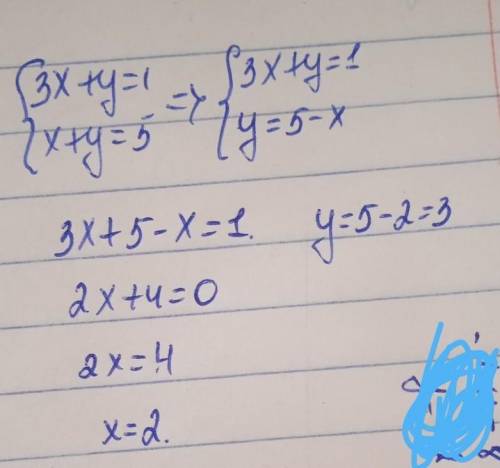 {3x+y=1 => {3x+y=1
{x+y=5 {y=5-x
3x+5-x=1. y=5-2=3
2x+4=0
2x=4
x=2.